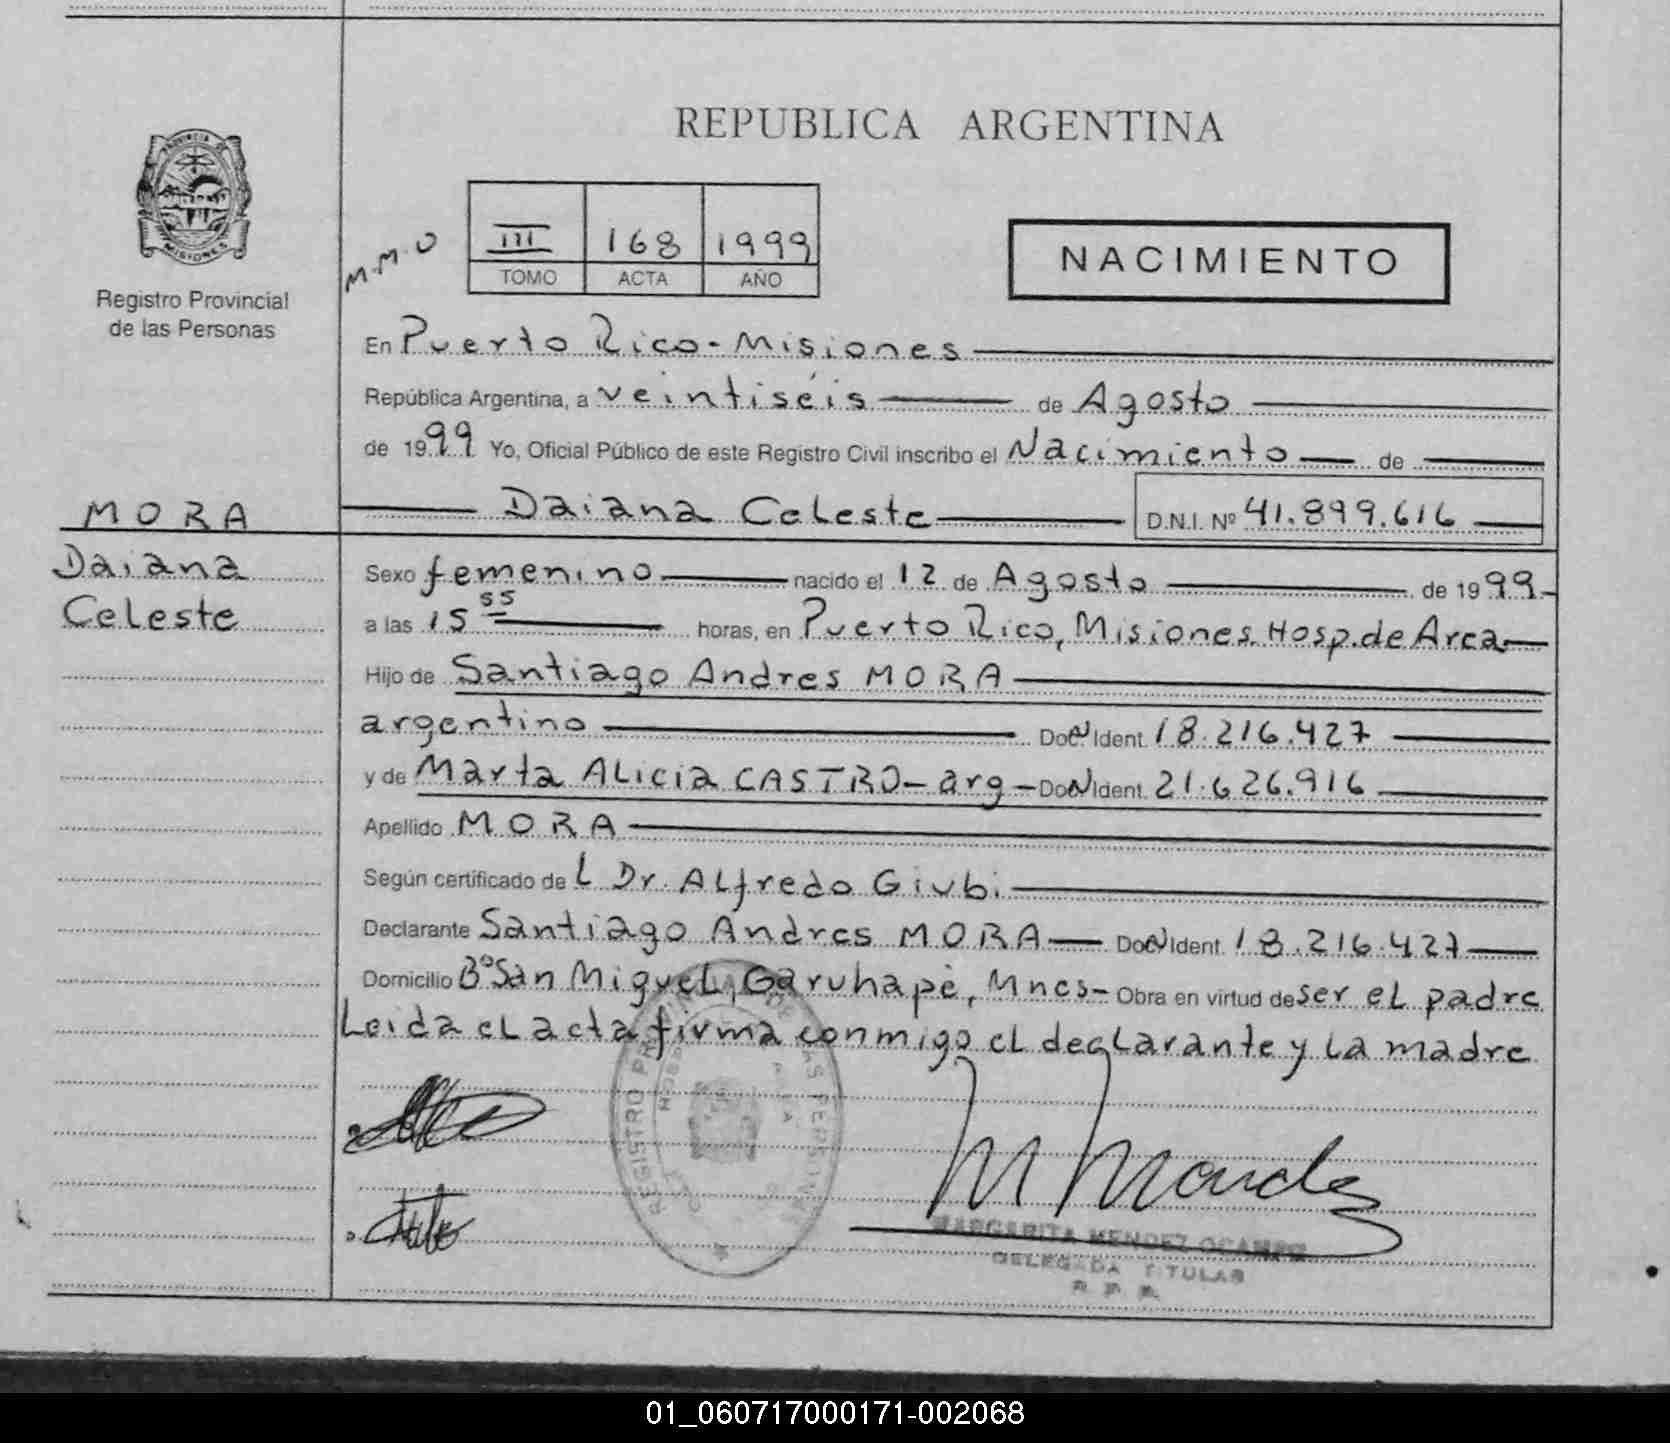 REPUBLICA ARGENTINA
PROVINCIA DE
MISIONES
Registro Provincial
de las Personas
M.M.O
III 168 1999
TOMO ACTA AÑO
NACIMIENTO
En Puerto Rico - Misiones
República Argentina, a veintiséis de Agosto
de 1999 Yo, Oficial Público de este Registro Civil inscribo el Nacimiento de
MORA Daiana Celeste D.N.I. Nº 41.899.616
Daiana
Celeste
Sexo femenino nacido el 12 de Agosto de 1999
a las 15 55 horas, en Puerto Rico, Misiones. Hosp. de Area
Hijo de Santiago Andres MORA
argentino Doc Ident. 18.216.427
y de Marta Alicia CASTRO - arg - Doc Ident. 21.626.916
Apellido MORA
Según certificado de L Dr. Alfredo Giubi
Declarante Santiago Andres MORA Doc Ident. 18.216.427
Domicilio Bº San Miguel, Garuhapé, Mnes - Obra en virtud de ser el padre
Leida el acta firma conmigo el declarante y la madre
REGISTRO
MARGARITA MENDEZ OCAMPO
DELEGADA TITULAR
R. P. P.
01_060717000171-002068